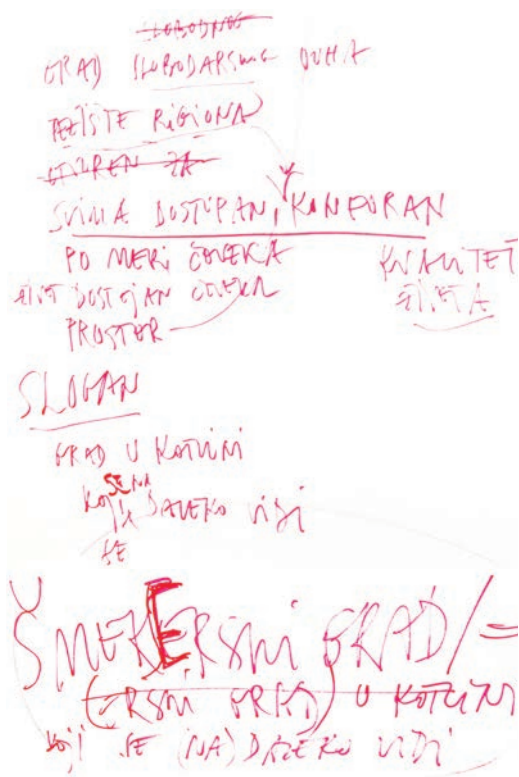 SLOBODNOG
GRAD SLOBODARSKOG DUHA
TEŽIŠTE RIGIONA
OTVOREN ZA
SVIMA DOSTUPAN, KONFORAN
PO MERI ČOVEKA
KVALITET
ŽIVOTA
ŽIVOT DOSTOJAN ČOVEKA
PROSTOR
SLOGAN
GRAD U KOTLINI
SE NA
KOJI DALEKO VIDI
SE
ŠMEKERSKI GRAD/-
(ERSKI GRAD) U KOTLINI
KOJI SE (NA) DALEKO VIDI